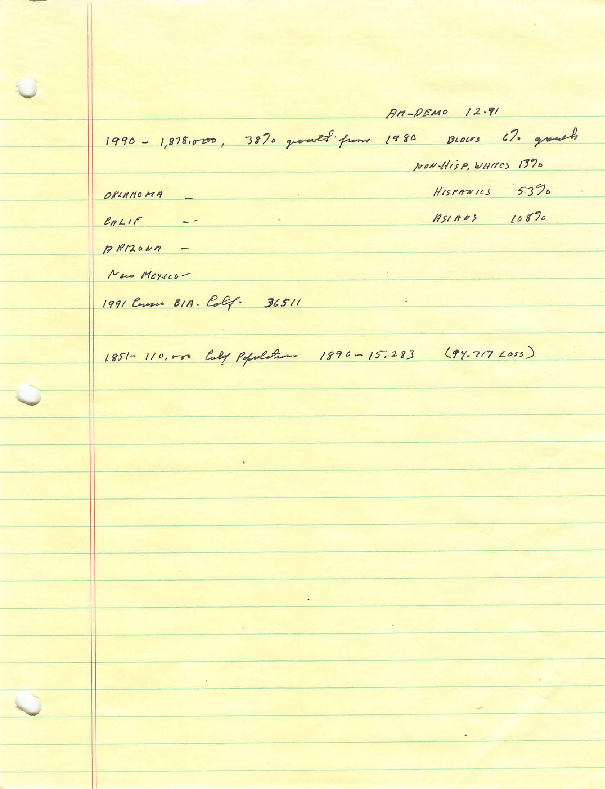 AM-DEMO 12.91
1990 - 1,878,000, 38% growth from 1980 BLACKS 6% growth
NON-HISP. WHITES 13%
OKLAHOMA - HISPANICS 53%
CALIF -- ASIANS 108%
ARIZONA -
New Mexico -
1991 Census BIA. Calif. 36511
1851- 110,000 Calif Population 1890-15,283 (94.717 LOSS)